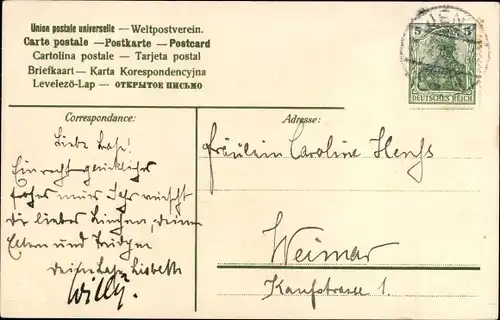 Union postale universelle — Weltpostverein.
Carte postale — Postkarte — Postcard
Cartolina postale — Tarjeta postal
Briefkaart — Karta Korespondencyjna
Levelező-Lap — ОТКРЫТОЕ ПИСЬМО
5
DEUTSCHES REICH
Correspondance:
Adresse:
Liebe
Ein recht glückliches
frohes neues Jahr wünscht
Dir liebes Linchen, deinen
Eltern und
deine Lisbeth
Willy.
Fräulein Caroline
Weimar
Kaufstrasse 1.